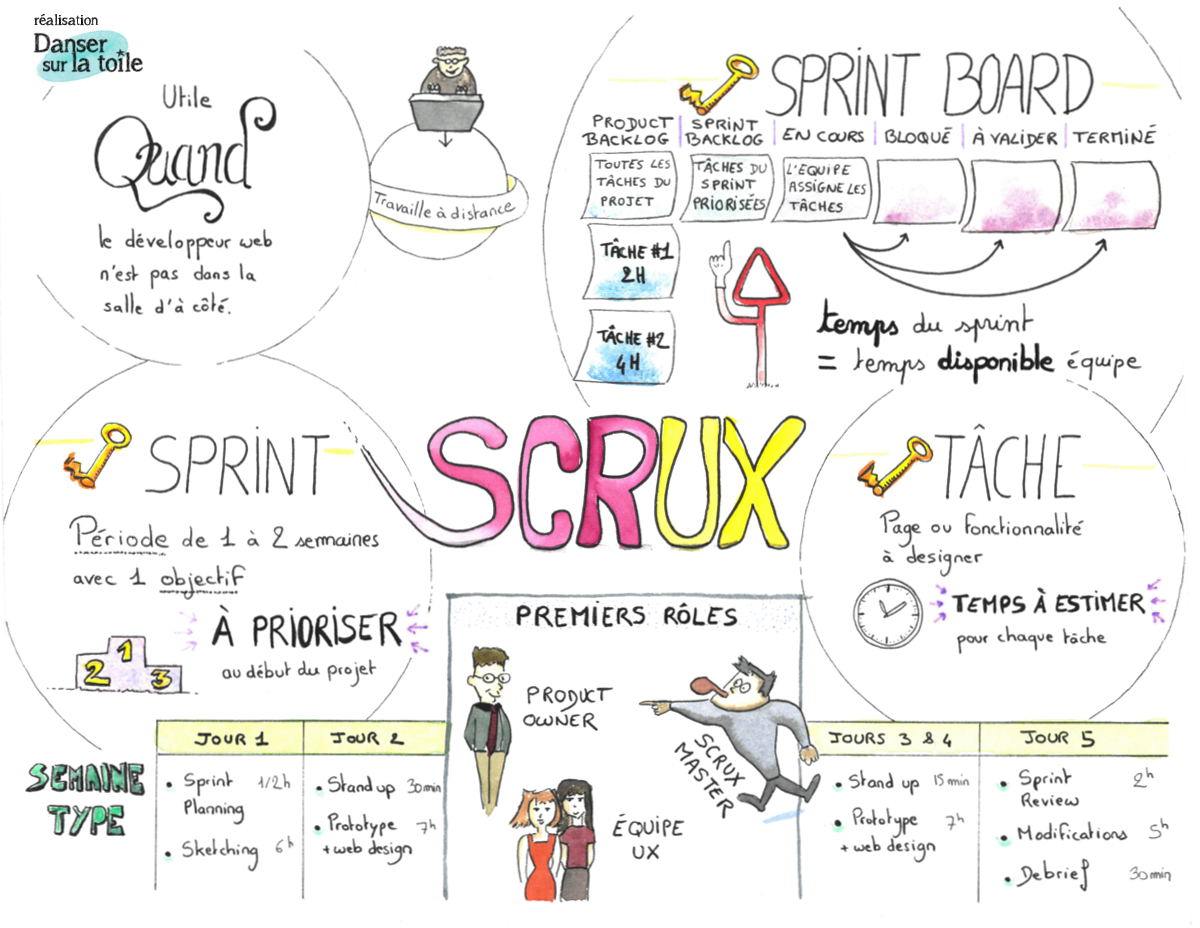 réalisation
Danser
sur la toile
Utile
Quand
le développeur web
n'est pas dans la
salle d'à côté.
Travaille à distance
SPRINT BOARD
PRODUCT BACKLOG
SPRINT BACKLOG
EN COURS
BLOQUÉ
À VALIDER
TERMINÉ
TOUTES LES
TÂCHES DU
PROJET
TÂCHES DU
SPRINT
PRIORISÉES
L'ÉQUIPE
ASSIGNE LES
TÂCHES
TÂCHE #1
2H
TÂCHE #2
4H
temps du sprint
= temps disponible équipe
SPRINT
Période de 1 à 2 semaines
avec 1 objectif
À PRIORISER
au début du projet
1
2
3
SCRUX
TÂCHE
Page ou fonctionnalité
à designer
TEMPS À ESTIMER
pour chaque tâche
PREMIERS RÔLES
PRODUCT
OWNER
SCRUX
MASTER
ÉQUIPE
UX
SEMAINE
TYPE
JOUR 1
Sprint 1/2h
Planning
Sketching 6h
JOUR 2
Stand up 30min
Prototype 7h
+ web design
JOURS 3 & 4
Stand up 15 min
Prototype 7h
+ web design
JOUR 5
Sprint 2h
Review
Modifications 5h
Debrief 30min